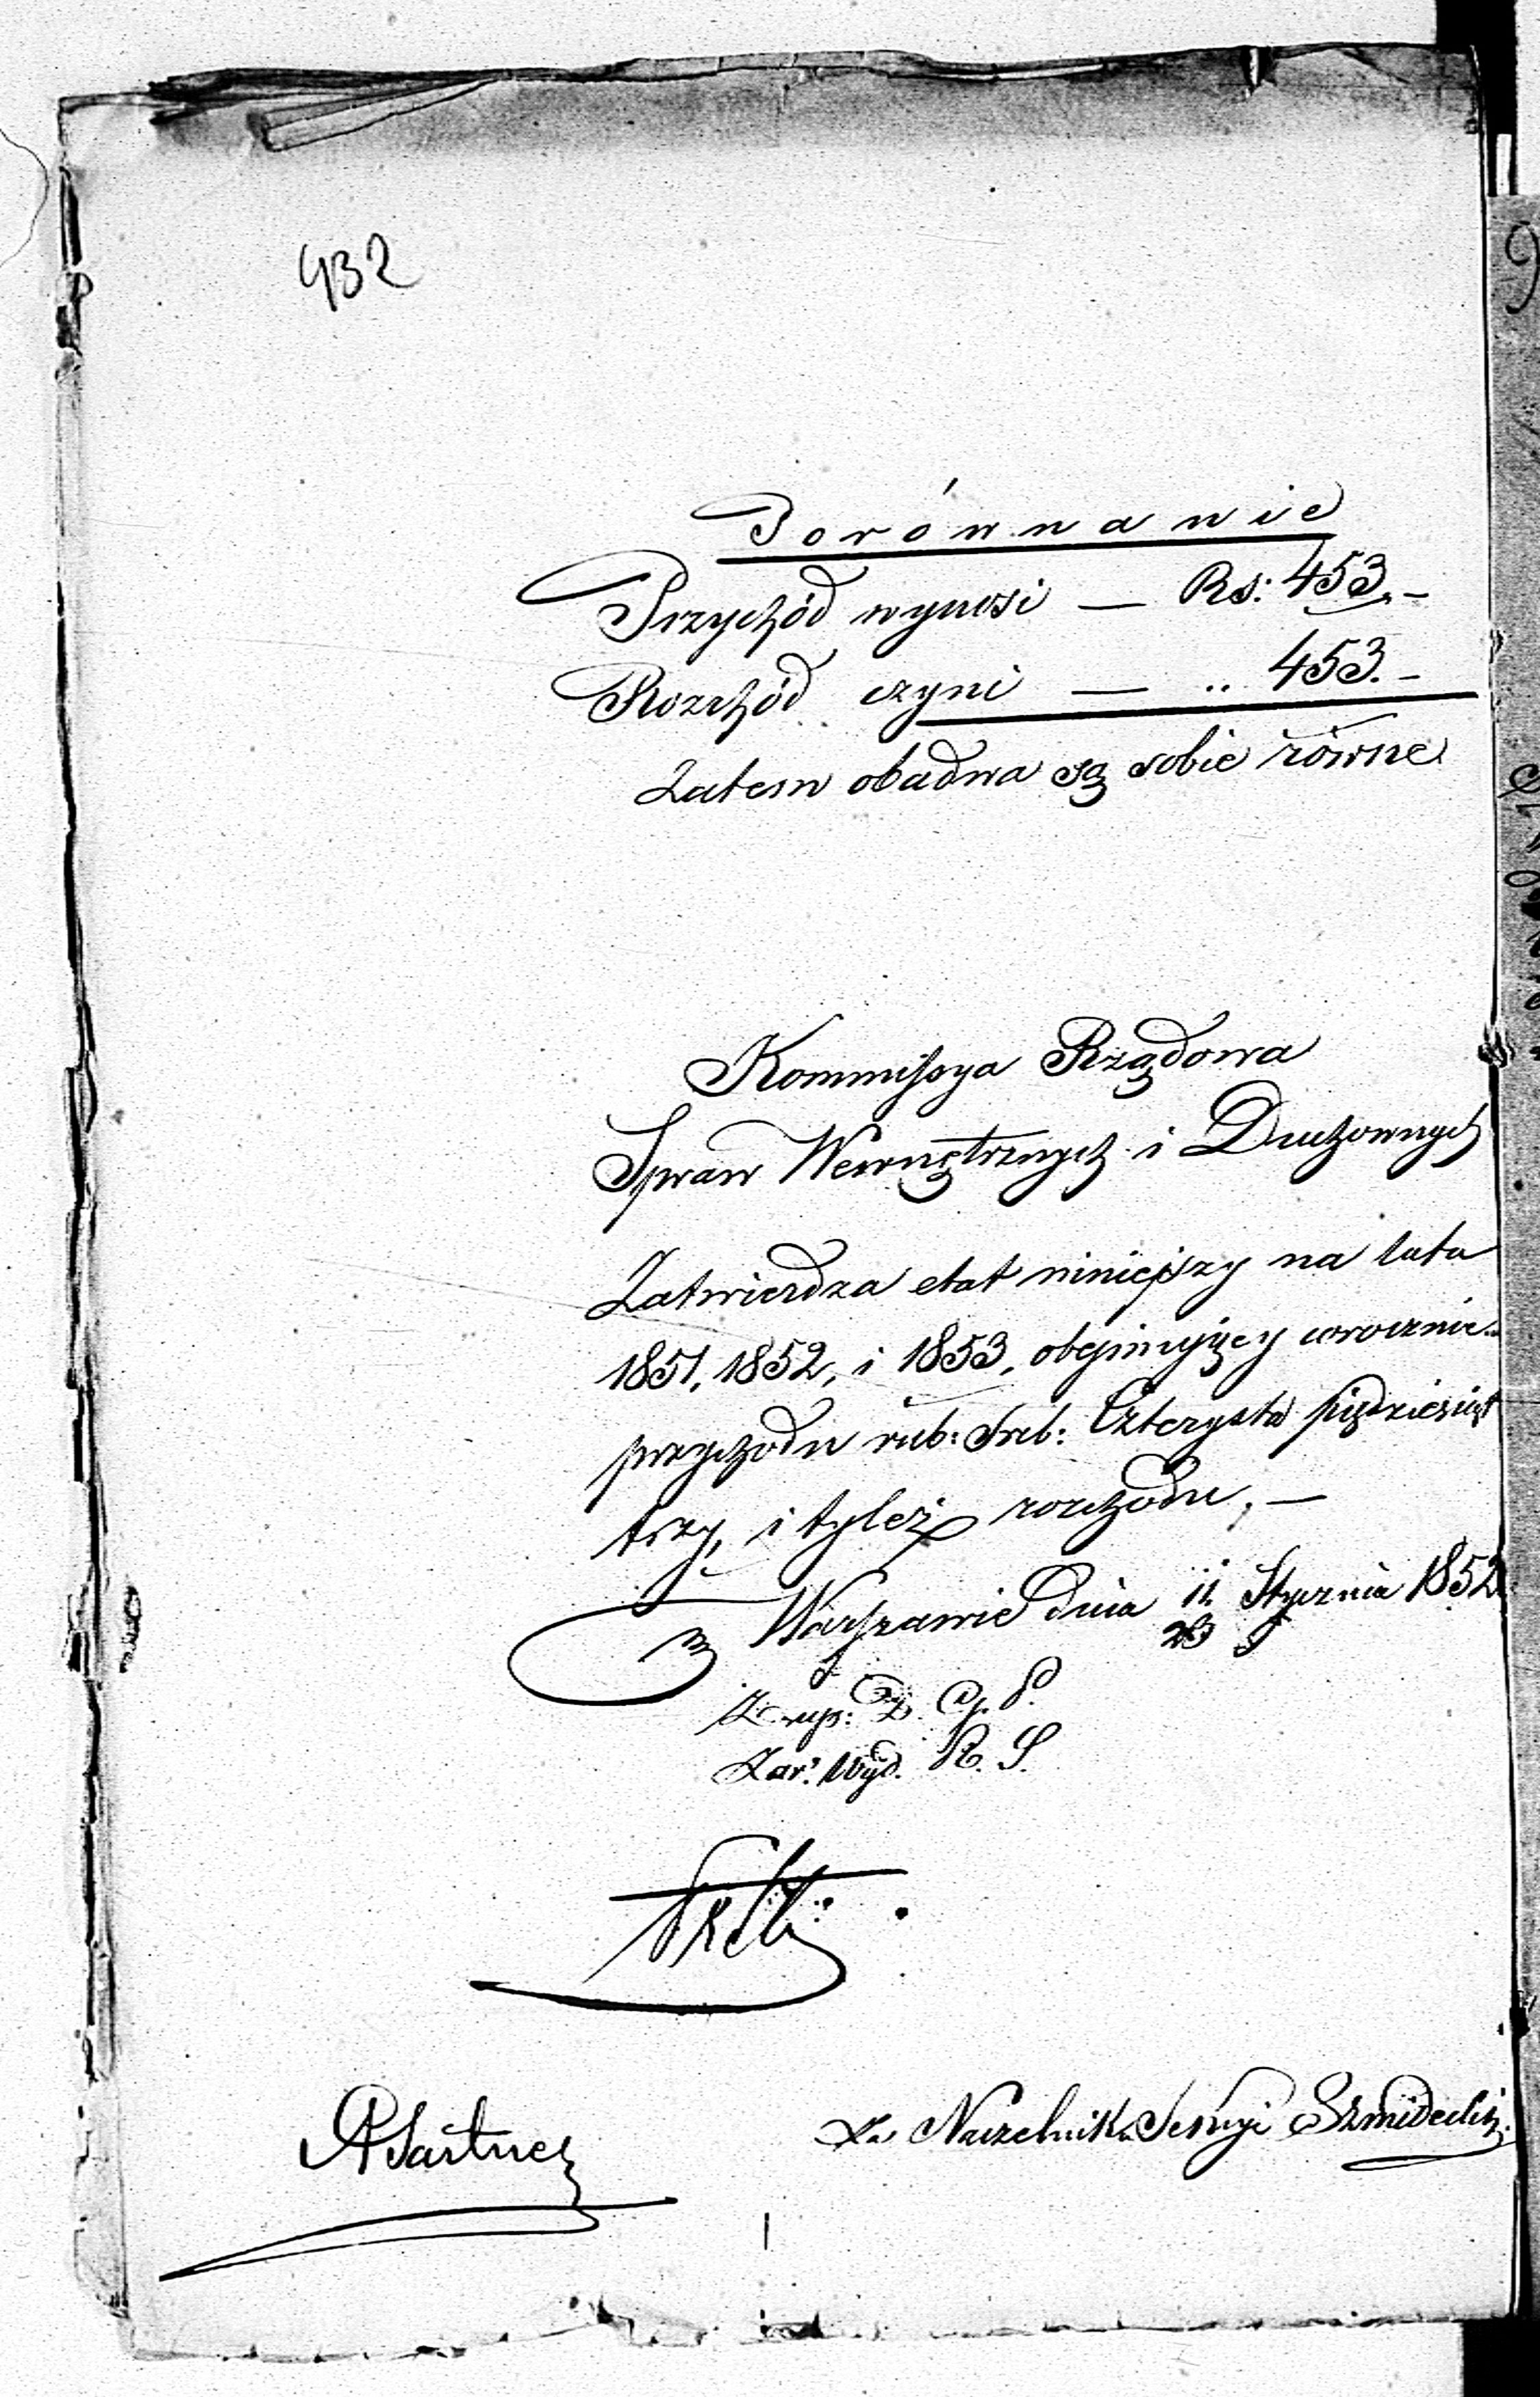 432
Porównanie
Przychód wynosi — Rs: 453.-
Rozchód czyni — „ 453.-
Zatem obadwa są sobie równe
Kommissya Rządowa
Spraw Wewnętrznych i Duchownych
Zatwierdza etat niniejszy na lata
1851, 1852, i 1853, obejmujący corocznie
przychodu rub: Sreb: Czterysta pięćdziesiąt
trzy, i tyleż rozchodu. —
w Warszawie dnia 11/23 Stycznia 1852
Z up: D. G. P.
Zar. Wyd. R. S.
Za Naczelnika Sekcyi